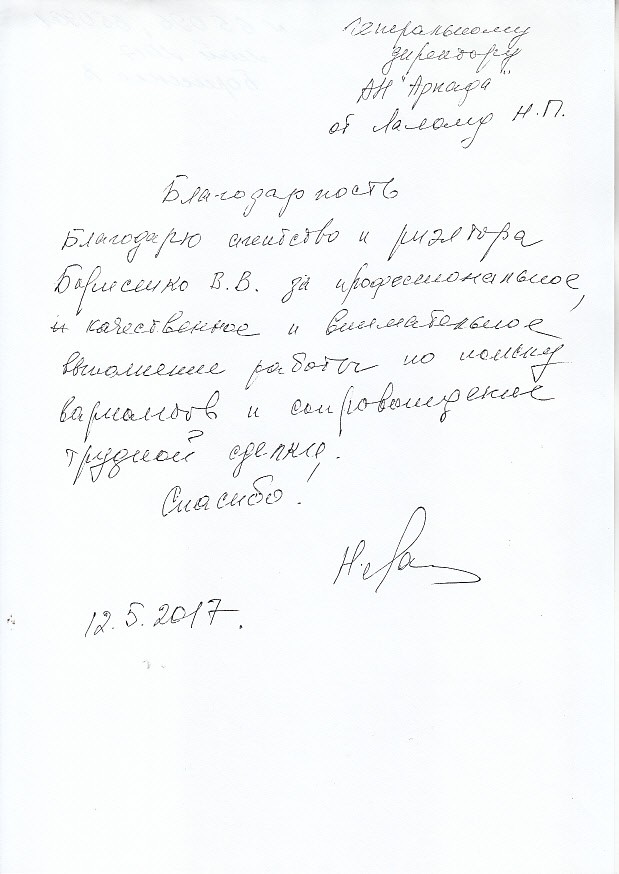 Генеральному
директору
АН "Аркада"
от Н.П.
Благодарность
Благодарю агентство и риэлтора
Борисенко В.В. за профессиональное,
и качественное и внимательное
выполнение работы по поиску
вариантов и сопровождение
трудной сделки!
Спасибо!
12.5.2017.